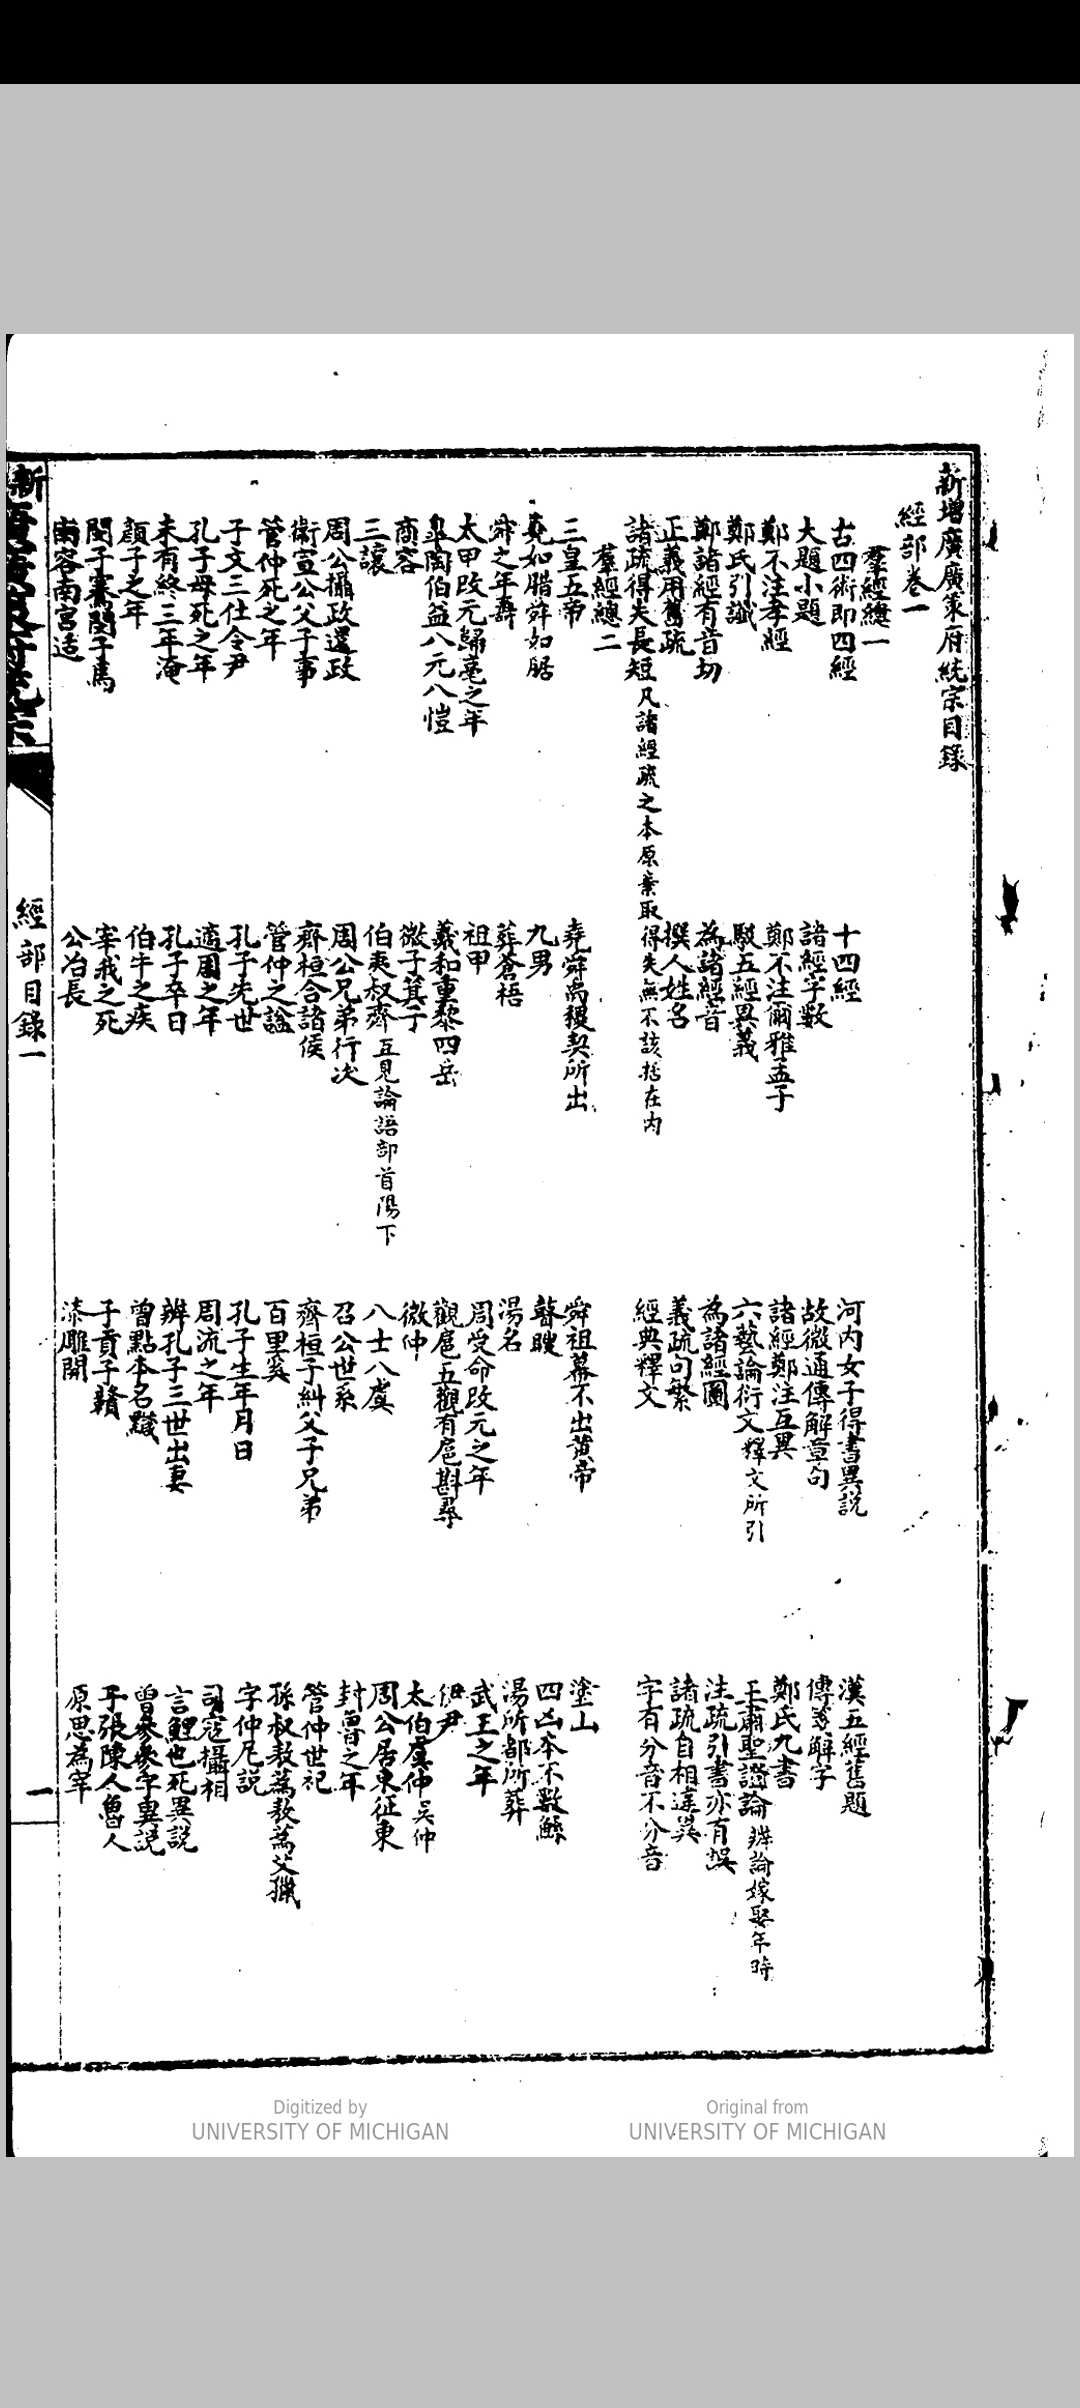 新增廣廣策府統宗目錄
經部卷一
羣經總一
古四術即四經 十四經 河內女子得書異說 漢五經舊題
大題小題 諸經字數 故微通傳解章句 傳箋解字
鄭不注孝經 鄭不注爾雅孟子 諸經鄭注互異 鄭氏九書
鄭氏引讖 駁五經異義 六藝論衍文釋文所引 王肅聖證論辨論嫁娶年時
鄭諸經有音切 為諸經音 為諸經圖 注疏引書亦有誤
正義用舊疏 撰人姓名 義疏句繁 諸疏自相違異
諸疏得失長短凡諸經疏之本原棄取得失無不該括在內 經典釋文 字有分音不分音
羣經總二
三皇五帝 堯舜禹稷契所出 舜祖幕不出黃帝 塗山
堯如腊舜如腒 九男 瞽瞍 四凶本不數鯀
舜之年壽 葬蒼梧 湯名 湯所都所葬
太甲改元歸亳之年 祖甲 周受命改元之年 武王之年
皐陶伯益八元八愷 羲和重黎四岳 觀扈五觀有扈斟尋 伊尹
商容 微子箕子 微仲 太伯虞仲吳仲
三讓 伯夷叔齊互見論語部首陽下 八士八虞 周公居東征東
周公攝政還政 周公兄弟行次 召公世系 封魯之年
衛宣公父子事 齊桓合諸侯 齊桓子糾父子兄弟 管仲世祀
管仲死之年 管仲之謚 百里奚 孫叔敖為敖為艾獵
子文三仕令尹 孔子先世 孔子生年月日 字仲尼說
孔子母死之年 適周之年 周流之年 司寇攝相
未有終三年淹 孔子卒日 辨孔子三世出妻 言鯉也死異說
顏子之年 伯牛之疾 曾點本名黬 曾參參字異說
閔子騫閔子馬 宰我之死 子貢子贛 子張陳人魯人
南容南宮适 公冶長 漆雕開 原思為宰
新
經部目錄一
一
Digitized by
UNIVERSITY OF MICHIGAN
Original from
UNIVERSITY OF MICHIGAN